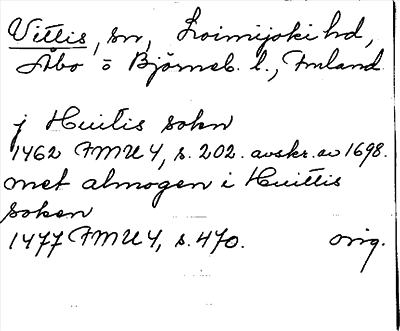 Vittis, sn, Loimijoki hd,
Åbo o Björneb. l., Finland
j Huitis sokn
1462 FMU 4, s. 202. avskr. av 1698.
met almogen i Huittis
soken
1477 FMU 4, s. 470. orig.